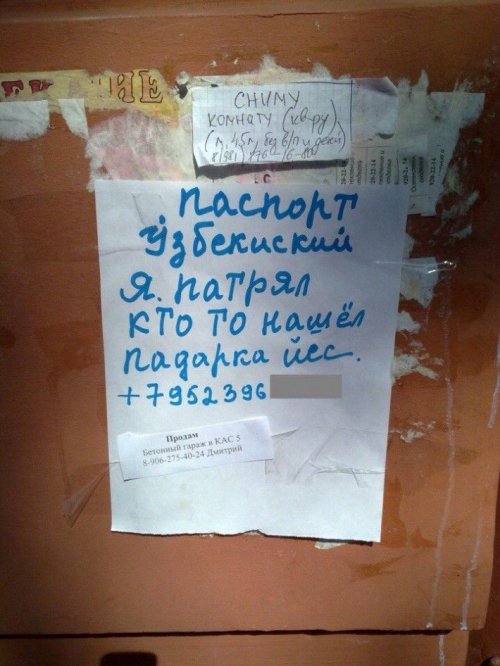 СНИМУ
КОМНАТУ (кв-ру)
(м, 45л, без в/п и
паспорт
Узбекиский
я. патрял
кто то нашёл
падарка йес.
+7952396
Продам
Бетонный гараж в КАС 5
8-906-275-40-24 Дмитрий